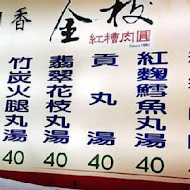 香 金枝
紅糟肉圓
Since 1981
紅麴鱈魚丸湯 40
貢丸湯 40
翡翠花枝丸湯 40
竹炭火腿丸湯 40